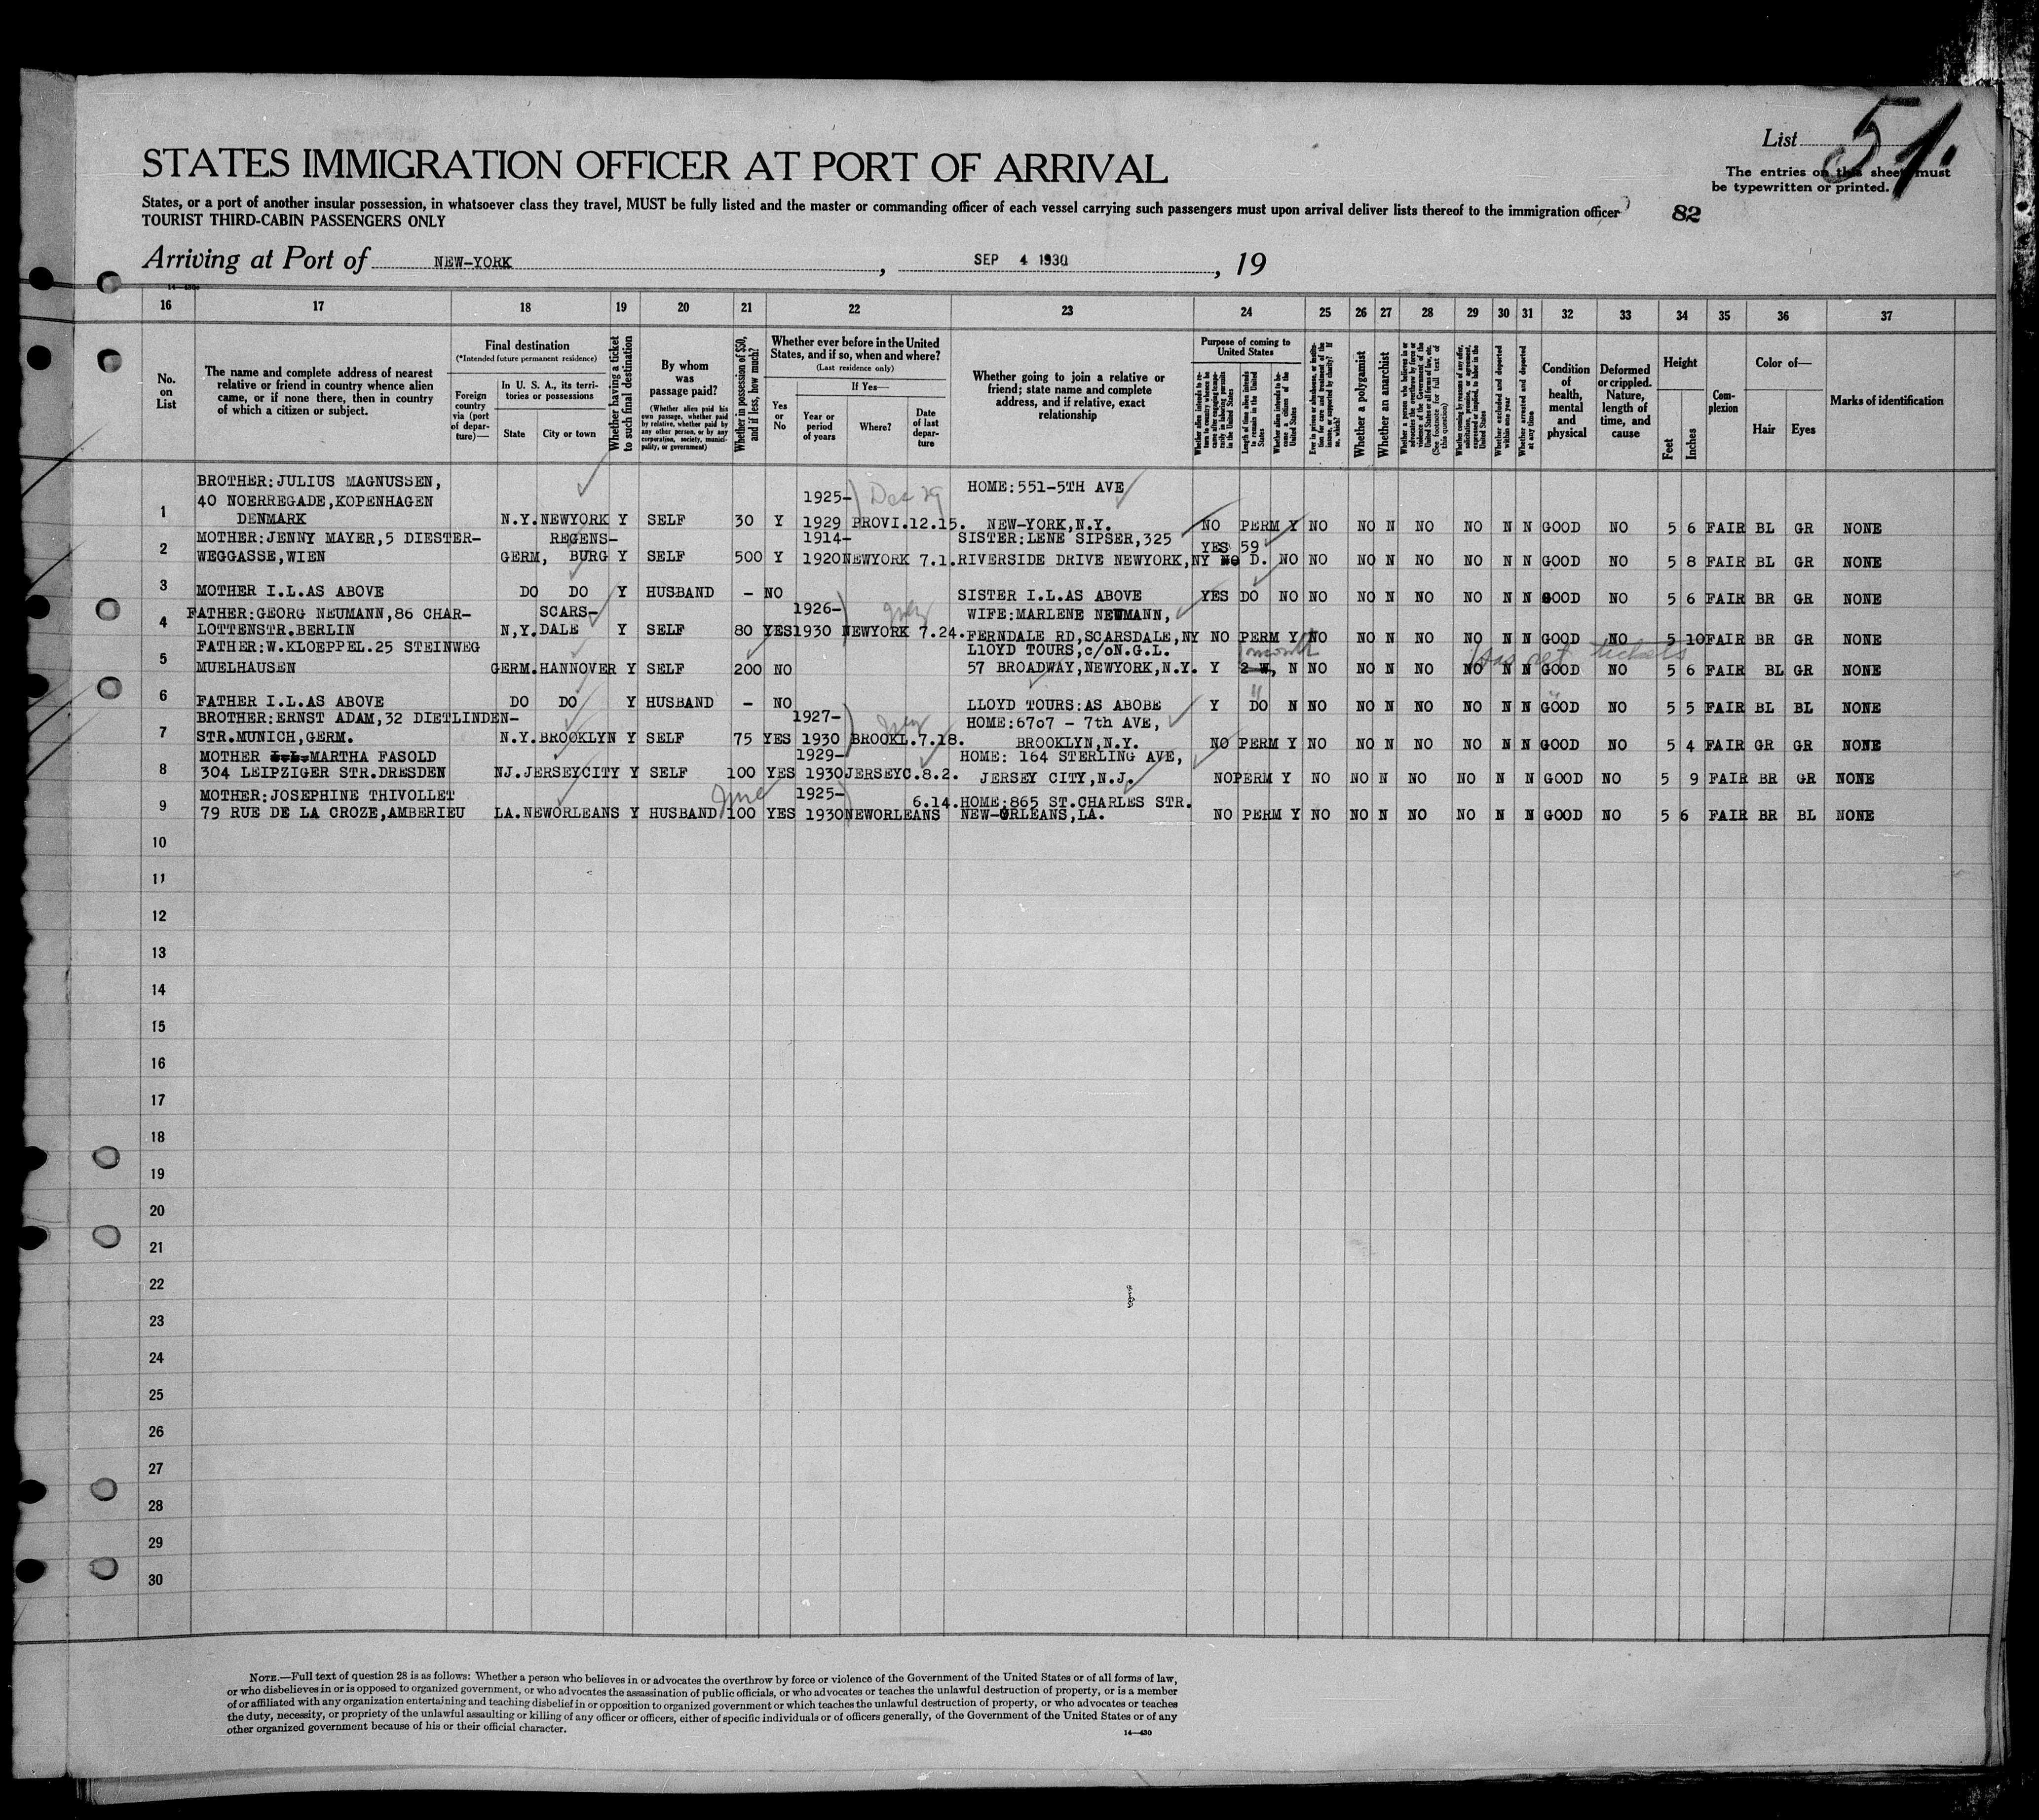 List 51.
The entries on this sheet must
be typewritten or printed.
STATES IMMIGRATION OFFICER AT PORT OF ARRIVAL
States, or a port of another insular possession, in whatsoever class they travel, MUST be fully listed and the master or commanding officer of each vessel carrying such passengers must upon arrival deliver lists thereof to the immigration officer
82
TOURIST THIRD-CABIN PASSENGERS ONLY
Arriving at Port of NEW-YORK, SEP 4 1930, 19
14-430
16 17 18 19 20 21 22 23 24 25 26 27 28 29 30 31 32 33 34 35 36 37
No. on List
The name and complete address of nearest relative or friend in country whence alien came, or if none there, then in country of which a citizen or subject.
Final destination
(*Intended future permanent residence)
Foreign country via (port of departure)—
In U. S. A., its territories or possessions
State City or town
Whether having a ticket to such final destination
By whom was passage paid?
(Whether alien paid his own passage, whether paid by relative, whether paid by any other person, or by any corporation, society, municipality, or government)
Whether in possession of $50, and if less, how much?
Whether ever before in the United States, and if so, when and where?
(Last residence only)
Yes or No
If Yes—
Year or period of years
Where?
Date of last departure
Whether going to join a relative or friend; state name and complete address, and if relative, exact relationship
Purpose of coming to United States
Length of time alien intends to remain in the United States
Whether alien intends to become a citizen of the United States
Whether a polygamist
Whether an anarchist
(See footnote for full text of this question)
Whether excluded and deported within one year
Whether arrested and deported at any time
Condition of health, mental and physical
Deformed or crippled. Nature, length of time, and cause
Height
Feet Inches
Complexion
Color of—
Hair Eyes
Marks of identification
BROTHER:JULIUS MAGNUSSEN,
40 NOERREGADE,KOPENHAGEN 1925- Dec 29 HOME:551-5TH AVE
1 DENMARK N.Y. NEWYORK Y SELF 30 Y 1929 PROVI.12.15. NEW-YORK,N.Y. NO PERM Y NO NO N NO NO N N GOOD NO 5 6 FAIR BL GR NONE
MOTHER:JENNY MAYER,5 DIESTER- REGENS- 1914- SISTER:LENE SIPSER,325 YES 59
2 WEGGASSE,WIEN GERM, BURG Y SELF 500 Y 1920 NEWYORK 7.1. RIVERSIDE DRIVE NEWYORK,NY NO D. NO NO NO N NO NO N N GOOD NO 5 8 FAIR BL GR NONE
3 MOTHER I.L.AS ABOVE DO DO Y HUSBAND - NO SISTER I.L.AS ABOVE YES DO NO NO NO N NO NO N N GOOD NO 5 6 FAIR BR GR NONE
FATHER:GEORG NEUMANN,86 CHAR- SCARS- 1926- July WIFE:MARLENE NEUMANN,
4 LOTTENSTR.BERLIN N,Y. DALE Y SELF 80 YES 1930 NEWYORK 7.24. FERNDALE RD,SCARSDALE,NY NO PERM Y NO NO N NO NO N N GOOD NO 5 10 FAIR BR GR NONE
FATHER:W.KLOEPPEL.25 STEINWEG LLOYD TOURS,c/oN.G.L. 1 month Has ret tickets
5 MUELHAUSEN GERM. HANNOVER Y SELF 200 NO 57 BROADWAY,NEWYORK,N.Y. Y 2 W, N NO NO N NO NO N N GOOD NO 5 6 FAIR BL GR NONE
6 FATHER I.L.AS ABOVE DO DO Y HUSBAND - NO LLOYD TOURS:AS ABOBE Y " DO N NO NO N NO NO N N " GOOD NO 5 5 FAIR BL BL NONE
BROTHER:ERNST ADAM,32 DIETLINDEN- 1927- July HOME:67o7 - 7th AVE,
7 STR.MUNICH,GERM. N.Y. BROOKLYN Y SELF 75 YES 1930 BROOKL.7.18. BROOKLYN,N.Y. NO PERM Y NO NO N NO NO N N GOOD NO 5 4 FAIR GR GR NONE
MOTHER MARTHA FASOLD 1929- HOME: 164 STERLING AVE,
8 304 LEIPZIGER STR.DRESDEN NJ. JERSEYCITY Y SELF 100 YES 1930 JERSEYC.8.2. JERSEY CITY,N.J. NO PERM Y NO NO N NO NO N N GOOD NO 5 9 FAIR BR GR NONE
MOTHER:JOSEPHINE THIVOLLET June 1925- 6.14. HOME:865 ST.CHARLES STR.
9 79 RUE DE LA CROZE,AMBERIEU LA. NEWORLEANS Y HUSBAND 100 YES 1930 NEWORLEANS NEW-ORLEANS,LA. NO PERM Y NO NO N NO NO N N GOOD NO 5 6 FAIR BR BL NONE
10
11
12
13
14
15
16
17
18
19
20
21
22
23
24
25
26
27
28
29
30
NOTE.—Full text of question 28 is as follows: Whether a person who believes in or advocates the overthrow by force or violence of the Government of the United States or of all forms of law,
or who disbelieves in or is opposed to organized government, or who advocates the assassination of public officials, or who advocates or teaches the unlawful destruction of property, or is a member
of or affiliated with any organization entertaining and teaching disbelief in or opposition to organized government or which teaches the unlawful destruction of property, or who advocates or teaches
the duty, necessity, or propriety of the unlawful assaulting or killing of any officer or officers, either of specific individuals or of officers generally, of the Government of the United States or of any
other organized government because of his or their official character.
14—430